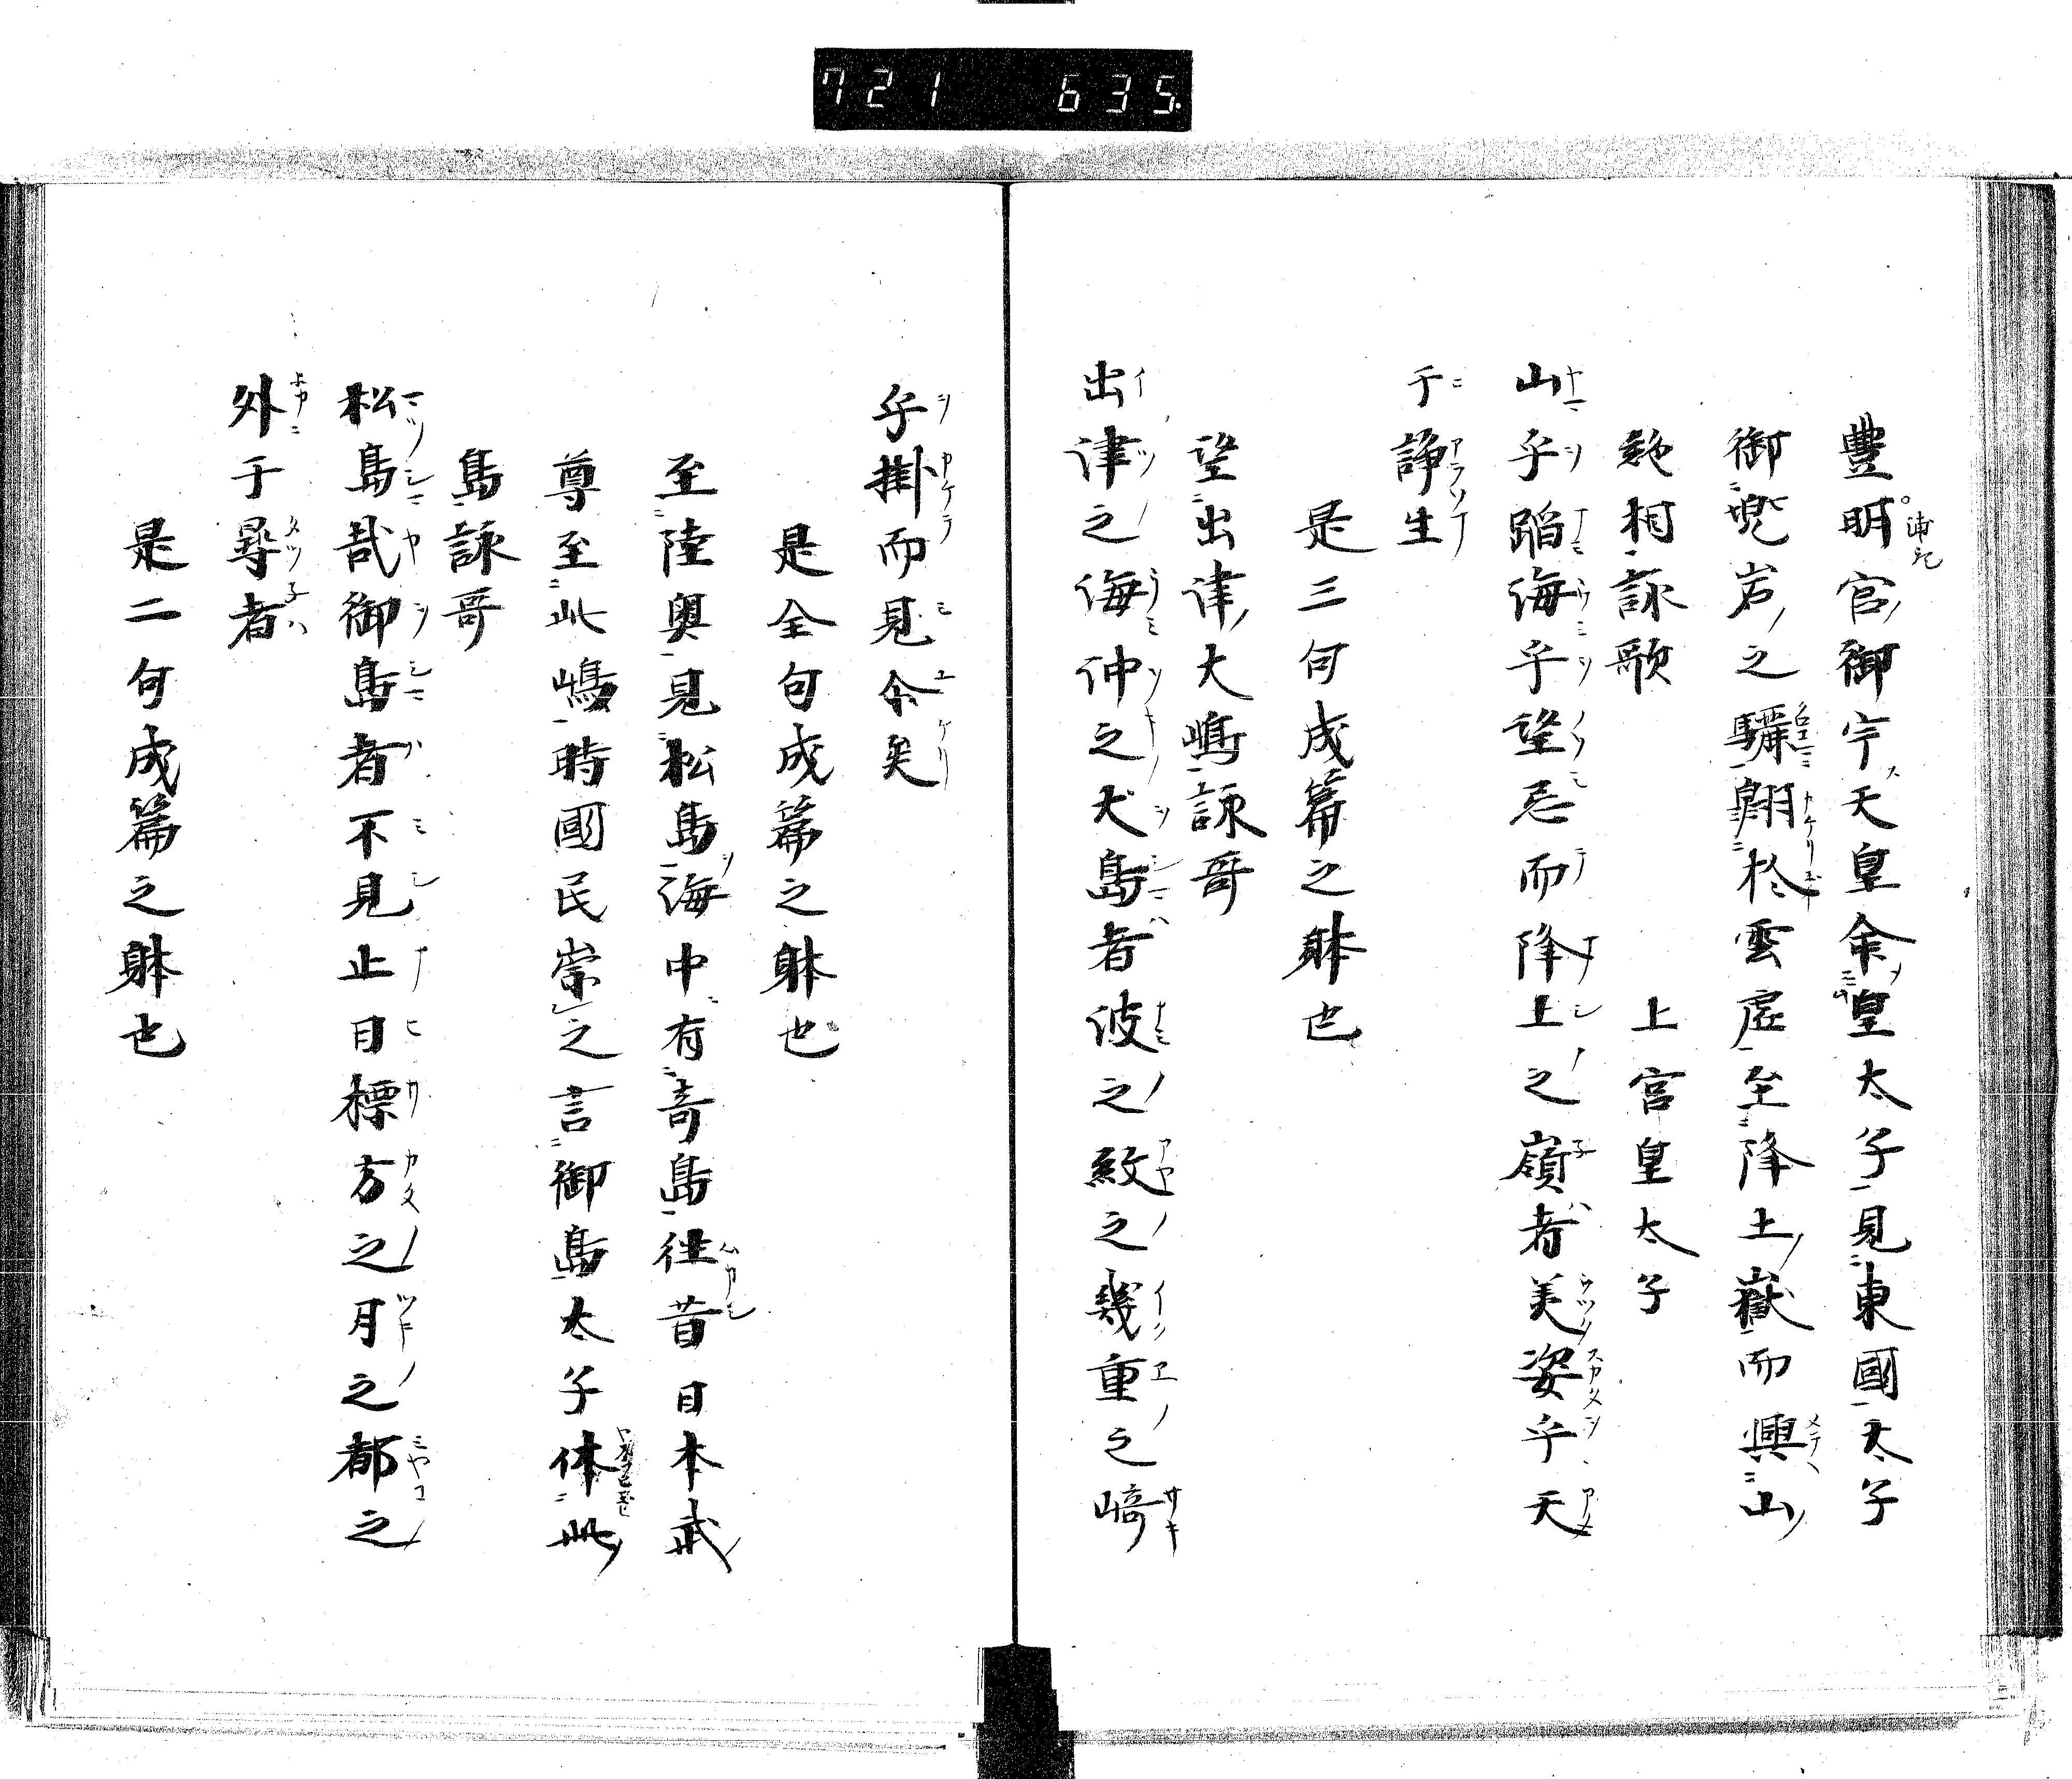 721 635.
豐明宮御宇天皇命皇太子見東國太子
御兜岩之驪翔於雲虚至降士嶽而興山
艶相詠歌 上宮皇太子
山乎蹈海乎望忍而降士之嶺者美姿乎天
于諍生
是三句成篇之躰也
望出津大嶋詠哥
出津之海沖之犬島者波之紋之幾重之﨑
乎掛而見余矣
是全句成篇之躰也
至陸奥見松島海中有奇島往昔日本武
尊至此嶋時國民崇之言御島太子休此
島詠哥
松島哉御島者不見止日標方之月之都之
外于尋者
是二句成篇之躰也